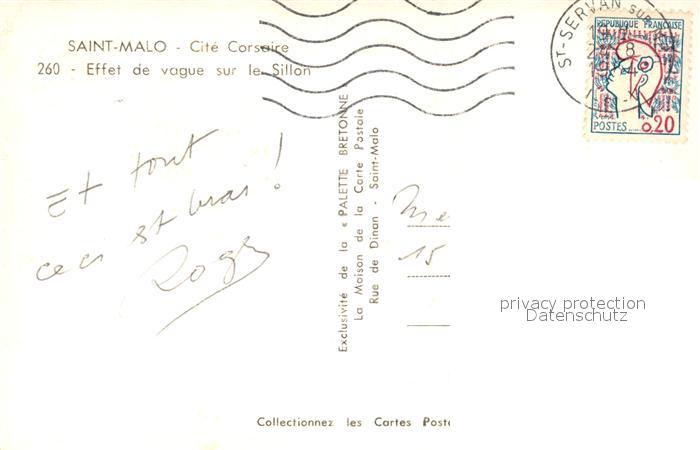 SAINT-MALO - Cité Corsaire
260 - Effet de vague sur le Sillon
ST-SERVAN SUR
8
REPUBLIQUE FRANÇAISE
POSTES
0,20
Et tout
ceci est vrai !
Roger
Exclusivité de la « PALETTE BRETONNE
La Maison de la Carte Postale
Rue de Dinan - Saint-Malo
Me
15
privacy protection
Datenschutz
Collectionnez les Cartes Poste